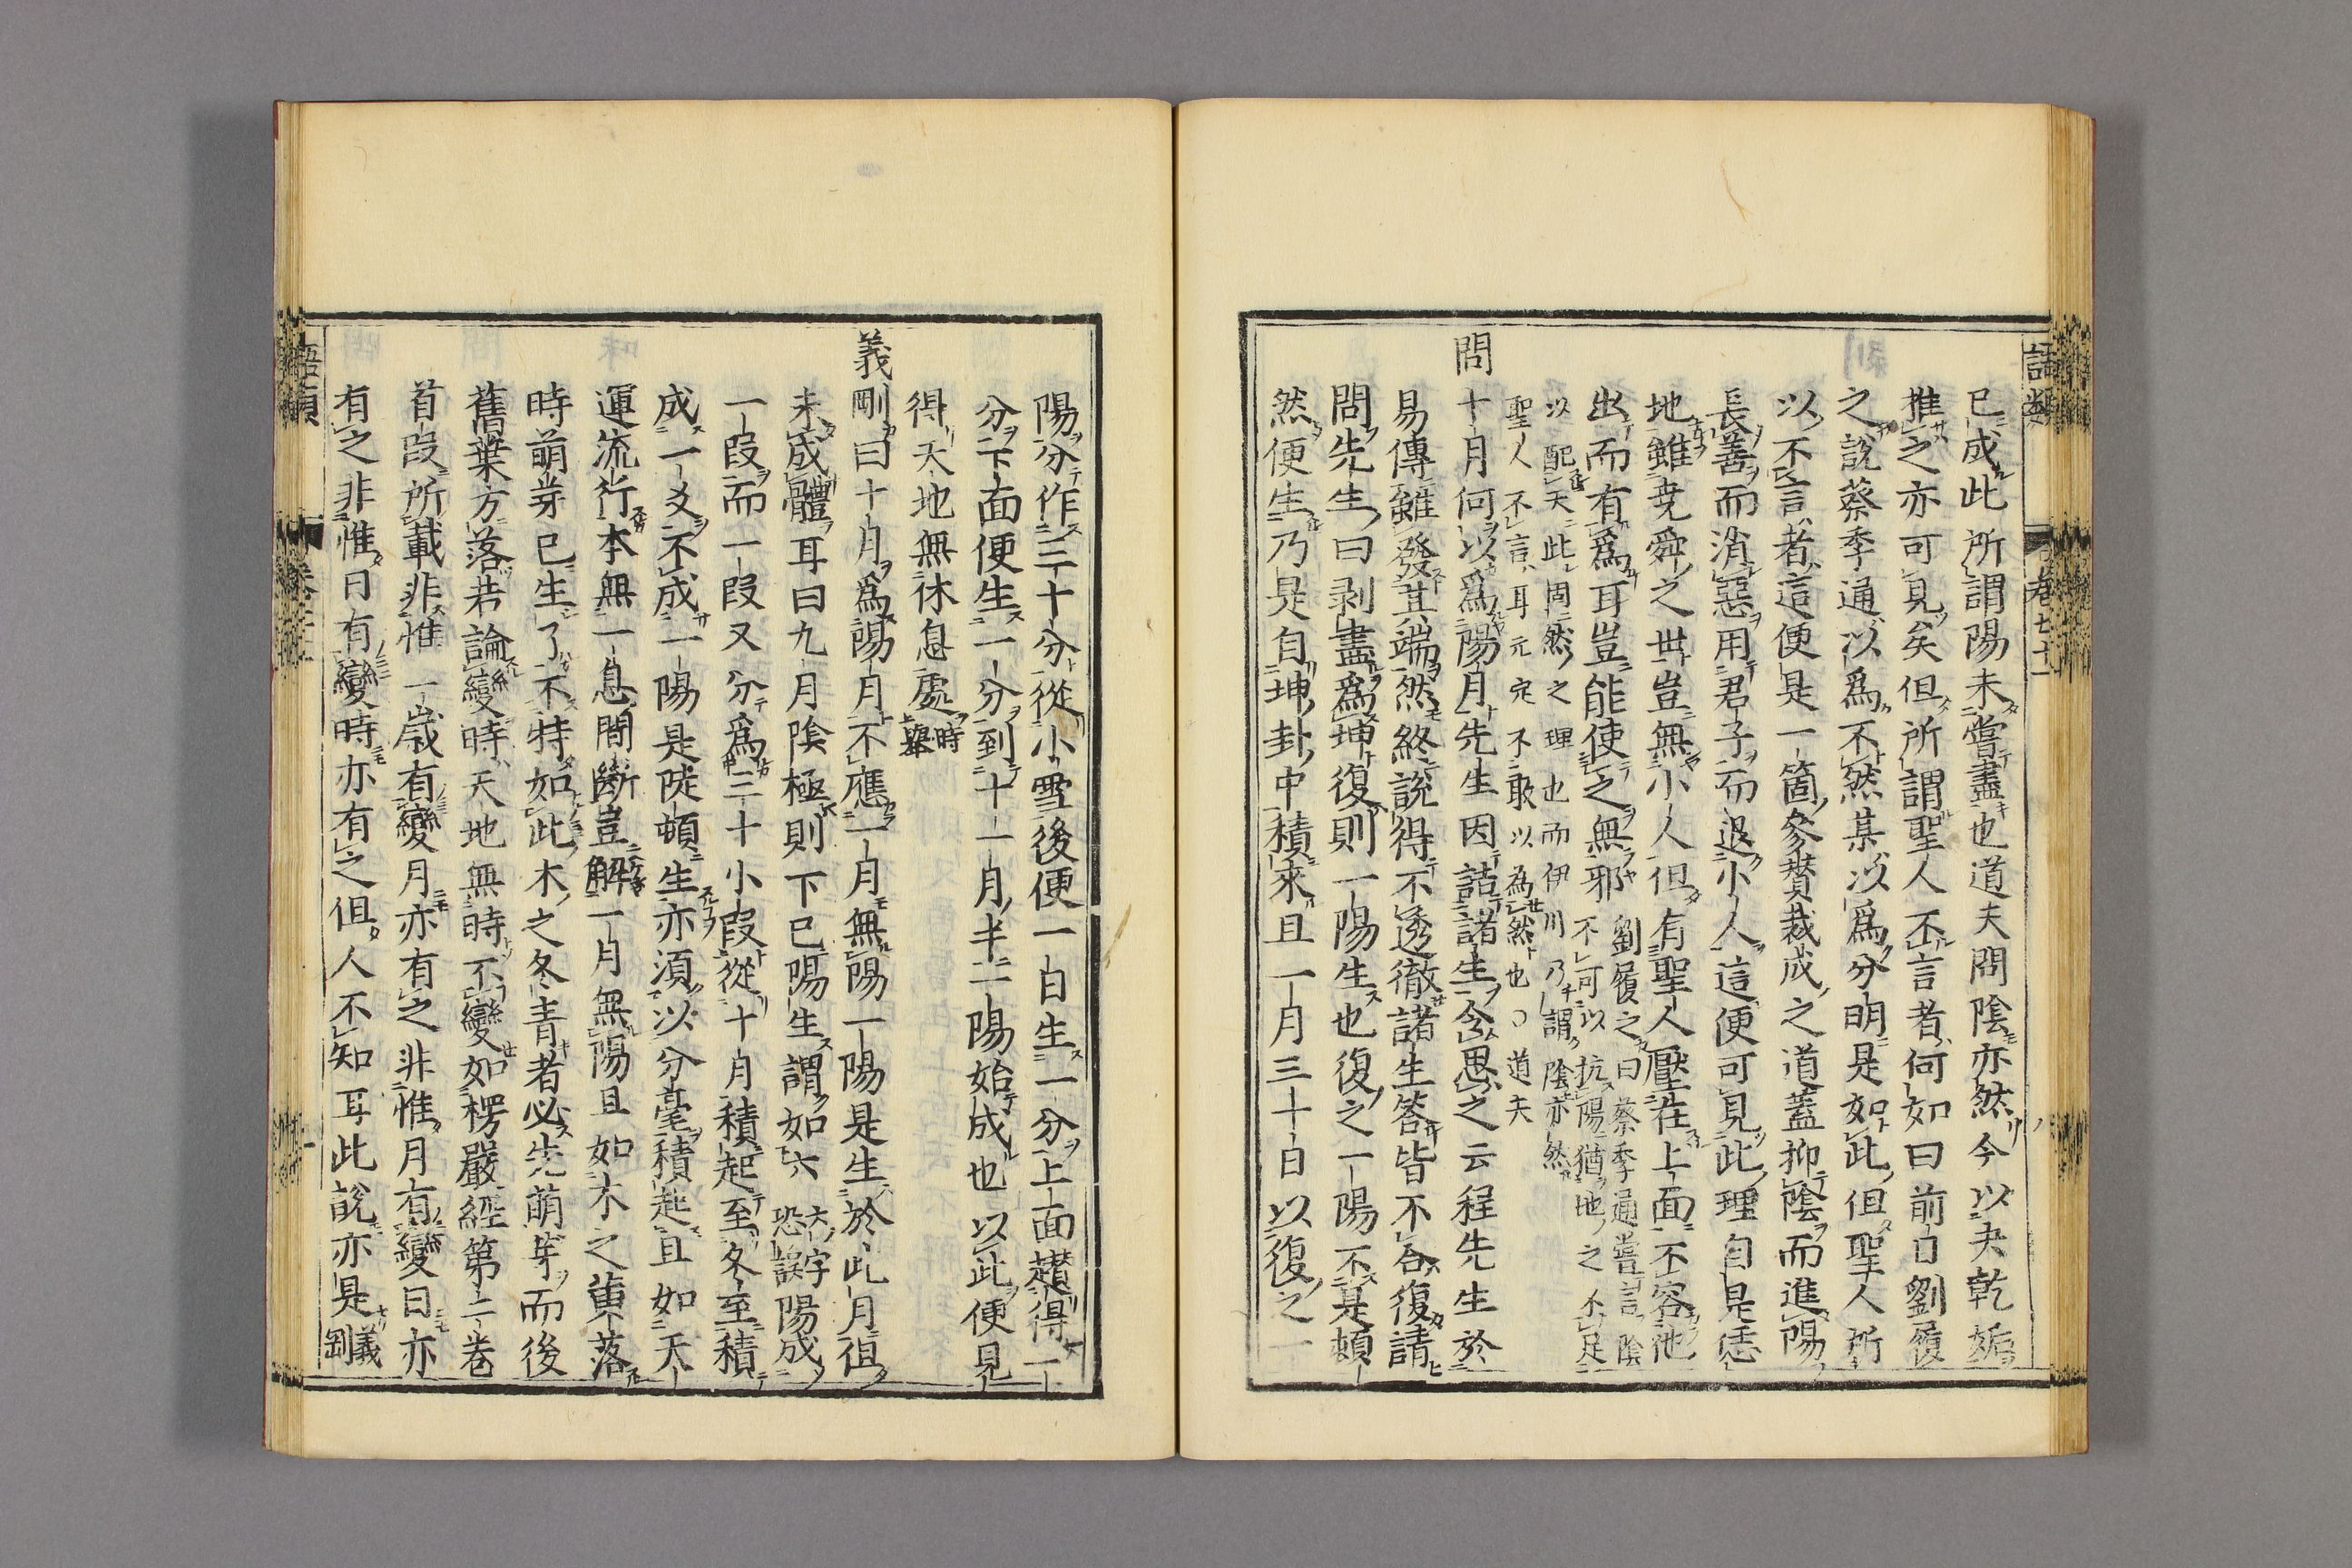 語類
卷七十一
已成此所謂陽未嘗盡也道夫問陰亦然今以夬乾姤
推之亦可見矣但所謂聖人不言者何如曰前日劉履
之說蔡季通以爲不然某以爲分明是如此但聖人所
以不言者這便是一箇參贊裁成之道蓋抑陰而進陽
長善而消惡用君子而退小人這便可見此理自是恁
地雖堯舜之世豈無小人但有聖人壓在上面不容他
出而有爲耳豈能使之無邪
劉履之曰蔡季通嘗言陰
不可以抗陽猶地之不足
以配天此固然之理也而伊川乃謂陰亦然
聖人不言耳元定不敢以為然也〇道夫
問十月何以爲陽月先生因詰諸生令思之云程先生於
易傳雖發其端然終說得不透徹諸生答皆不合復請
問先生曰剥盡爲坤復則一陽生也復之一陽不是頓
然便生乃是自坤卦中積來且一月三十日以復之一
陽分作三十分從小雪後便一日生一分上面趲得一
分下面便生一分到十一月半一陽始成也以此便見
得天地無休息處時舉
義剛曰十月爲陽月不應一月無陽一陽是生於此月但
未成體耳曰九月陰極則下已陽生謂如六
大字
恐誤
陽成
一段而一段又分爲三十小段從十月積起至冬至積
成一爻不成一陽是陡頓生亦須以分毫積起且如天
運流行本無一息間斷豈解一月無陽且如木之黄落
時萌芽已生了不特如此木之冬青者必先萌芽而後
舊葉方落若論變時天地無時不變如楞嚴經第二卷
首段所載非惟一歲有變月亦有之非惟月有變日亦
有之非惟日有變時亦有之但人不知耳此說亦是義剛
語類